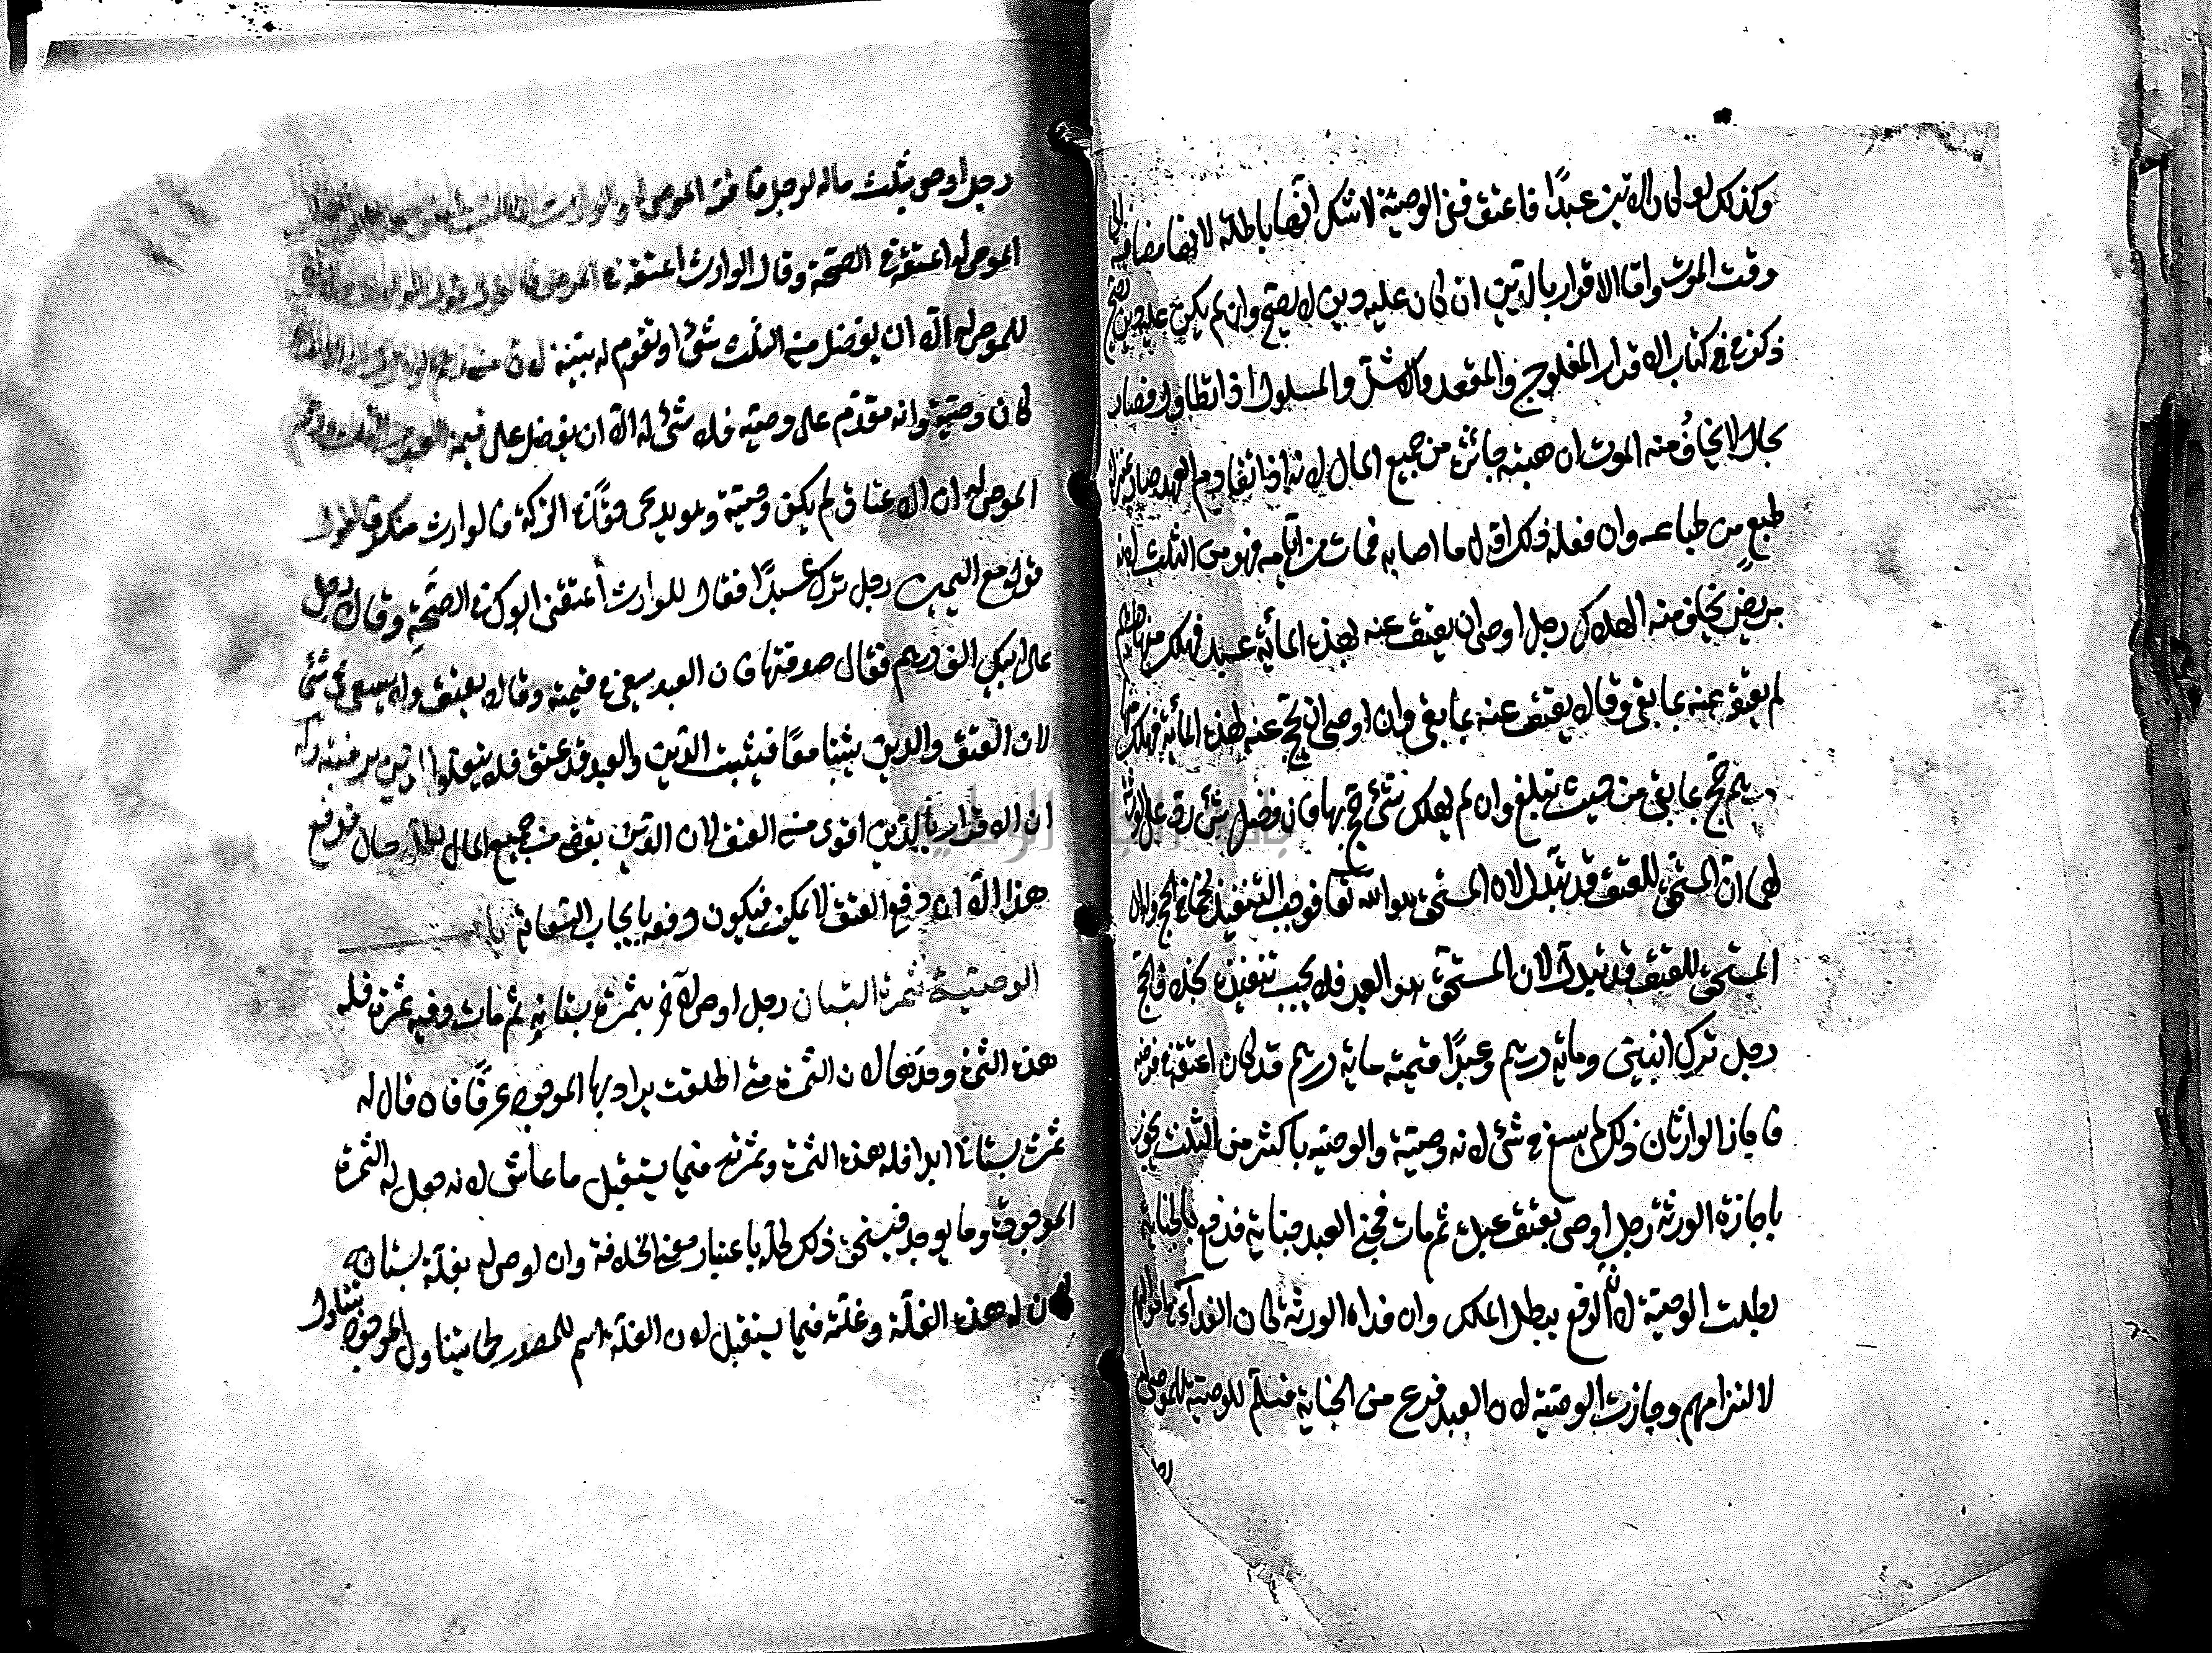 وكذلك لو كان الابن عبدا فاعتق ففي الوصية لا شكل انها باطلة لانها مضافة الى
وقت الموت واما الاقرار بالدين ان كان عليه دين لا يصح وان لم يكن عليه دين يصح
ذكره في كتاب الاقرار المفلوج والمقعد والاشل والمسلول اذا تطاول فصار
بحال لا يخاف منه الموت ان هبته جائزة من جميع المال لانه اذا تقادم العهد صار بمنزلة
طبع من طباعه وان فعله ذلك اول ما اصابه فمات من ايامه فهو من الثلث لانه
مريض يخاف منه الهلاك رجل اوصى ان يعتق عنه بهذه المائة عبد فهلك منها درهم
لم يعتق عنه بما بقي وقال يعتق عنه بما بقي وان اوصى ان يحج عنه بهذه المائة فهلك منها
درهم حج بما بقي من حيث تبلغ وان لم يهلك شئ حج بها فان فضل شئ رد على الورثة
لهما ان المستحق للعتق قد تبدل لان المستحق هو الله تعا فوجب التنفيذ كما في الحج وله ان
المستحق للعتق قد تبدل لان المستحق هو العبد فلا يجب تنفيذه بخلاف الحج
رجل ترك ابنين ومائة درهم وعبدا قيمته مائة درهم قد كان اعتقه في مرضه
فاجاز الوارثان ذلك لم يسع في شئ لانه وصية والوصية باكثر من الثلث يجوز
باجازة الورثة رجل اوصى بعتق عبده ثم مات فجنى العبد جناية فدفع بالجناية
بطلت الوصية لان الدفع يبطل الملك وان فداه الورثة كان الفداء في مالهم
لالتزامهم وجازت الوصية لان العبد فرغ من الجناية فسلم للوصية للموصى له
رجل
رجل اوصى بثلث ماله لرجل فاقر الموصى له والوارث ان
الموصى له اعتقه في الصحة وقال الوارث اعتقه في المرض فالقول قول الوارث ولا شئ
للموصى له الا ان يفضل من الثلث شئ او تقوم له بينة لان من زعم الوارث ان
كان وصية وانه مقدم على وصيته فلا شئ له الا ان يفضل على قيمة العبد الثلث وزعم
الموصى له ان الاعتاق لم يكن وصية وهو يدعي حقا في التركة فالوارث منكر فالقول
قوله مع اليمين رجل ترك عبدا فقال للوارث اعتقني ابوك في الصحة وقال رجل
على ابيك الف درهم فقال صدقتما فان العبد سعى في قيمته وقالا يعتق ولا يسعى في شئ
لان العتق والدين يثبتا معا فيثبت الدين والعبد قد عتق فلا يتعلق الدين برقبته وله
ان الاقرار بالدين اقوى من العتق لان الدين يقضى من جميع المال بكل حال فدفع
هذا الا ان دفع العتق لا يمكن فيكون دفعه بايجاب السعاية باب
الوصية بثمرة البستان رجل اوصى لآخر بثمرة بستانه ثم مات وفيه ثمرة فله
هذه الثمرة وحدها لان الثمرة متى اطلقت يراد بها الموجود عرفا فان قال له
ثمرة بستاني ابدا فله هذه الثمرة وثمرته فيما يستقبل ما عاش لانه جعل له الثمرة
الموجودة وما يوجد فيستحق ذلك كله باعتبار معنى الخلافة وان اوصى له بغلة بستانه
كان له هذه الغلة وغلته فيما يستقبل لان الغلة اسم للمصدر كما يتناول الموجود
يتناول